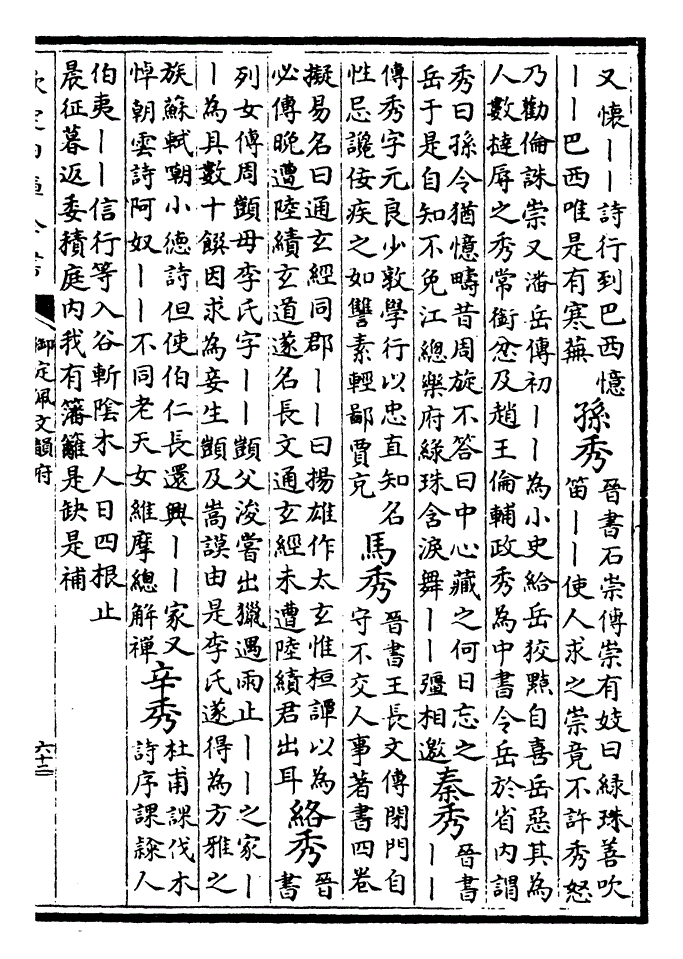 又懷丨丨詩行到巴西憶
丨丨巴西唯是有寒蕪
孫秀
晉書石崇傳崇有妓曰綠珠善吹
笛丨丨使人求之崇竟不許秀怒
乃勸倫誅崇又潘岳傳初丨丨為小史給岳狡黠自喜岳惡其為
人數撻辱之秀常銜忿及趙王倫輔政秀為中書令岳於省內謂
秀曰孫令猶憶疇昔周旋不答曰中心藏之何日忘之
岳于是自知不免江總樂府綠珠含淚舞丨丨彊相邀
秦秀
晉書
丨丨
傳秀字元良少敦學行以忠直知名
性忌讒佞疾之如讐素輕鄙賈充
馬秀
晉書王長文傳閉門自
守不交人事著書四卷
擬易名曰通玄經同郡丨丨曰揚雄作太玄惟桓譚以為
必傳晚遭陸績玄道遂名長文通玄經未遭陸績君出耳
絡秀
晉
書
列女傳周顗母李氏字丨丨顗父浚嘗出獵遇雨止丨丨之家丨
丨為具數十饌因求為妾生顗及嵩謨由是李氏遂得為方雅之
族蘇軾嘲小德詩但使伯仁長還興丨丨家又
悼朝雲詩阿奴丨丨不同老天女維摩總解禪
辛秀
杜甫課伐木
詩序課隸人
伯夷丨丨信行等入谷斬陰木人日四根止
晨征暮返委積庭內我有藩籬是缺是補
御定佩文韻府
六十三